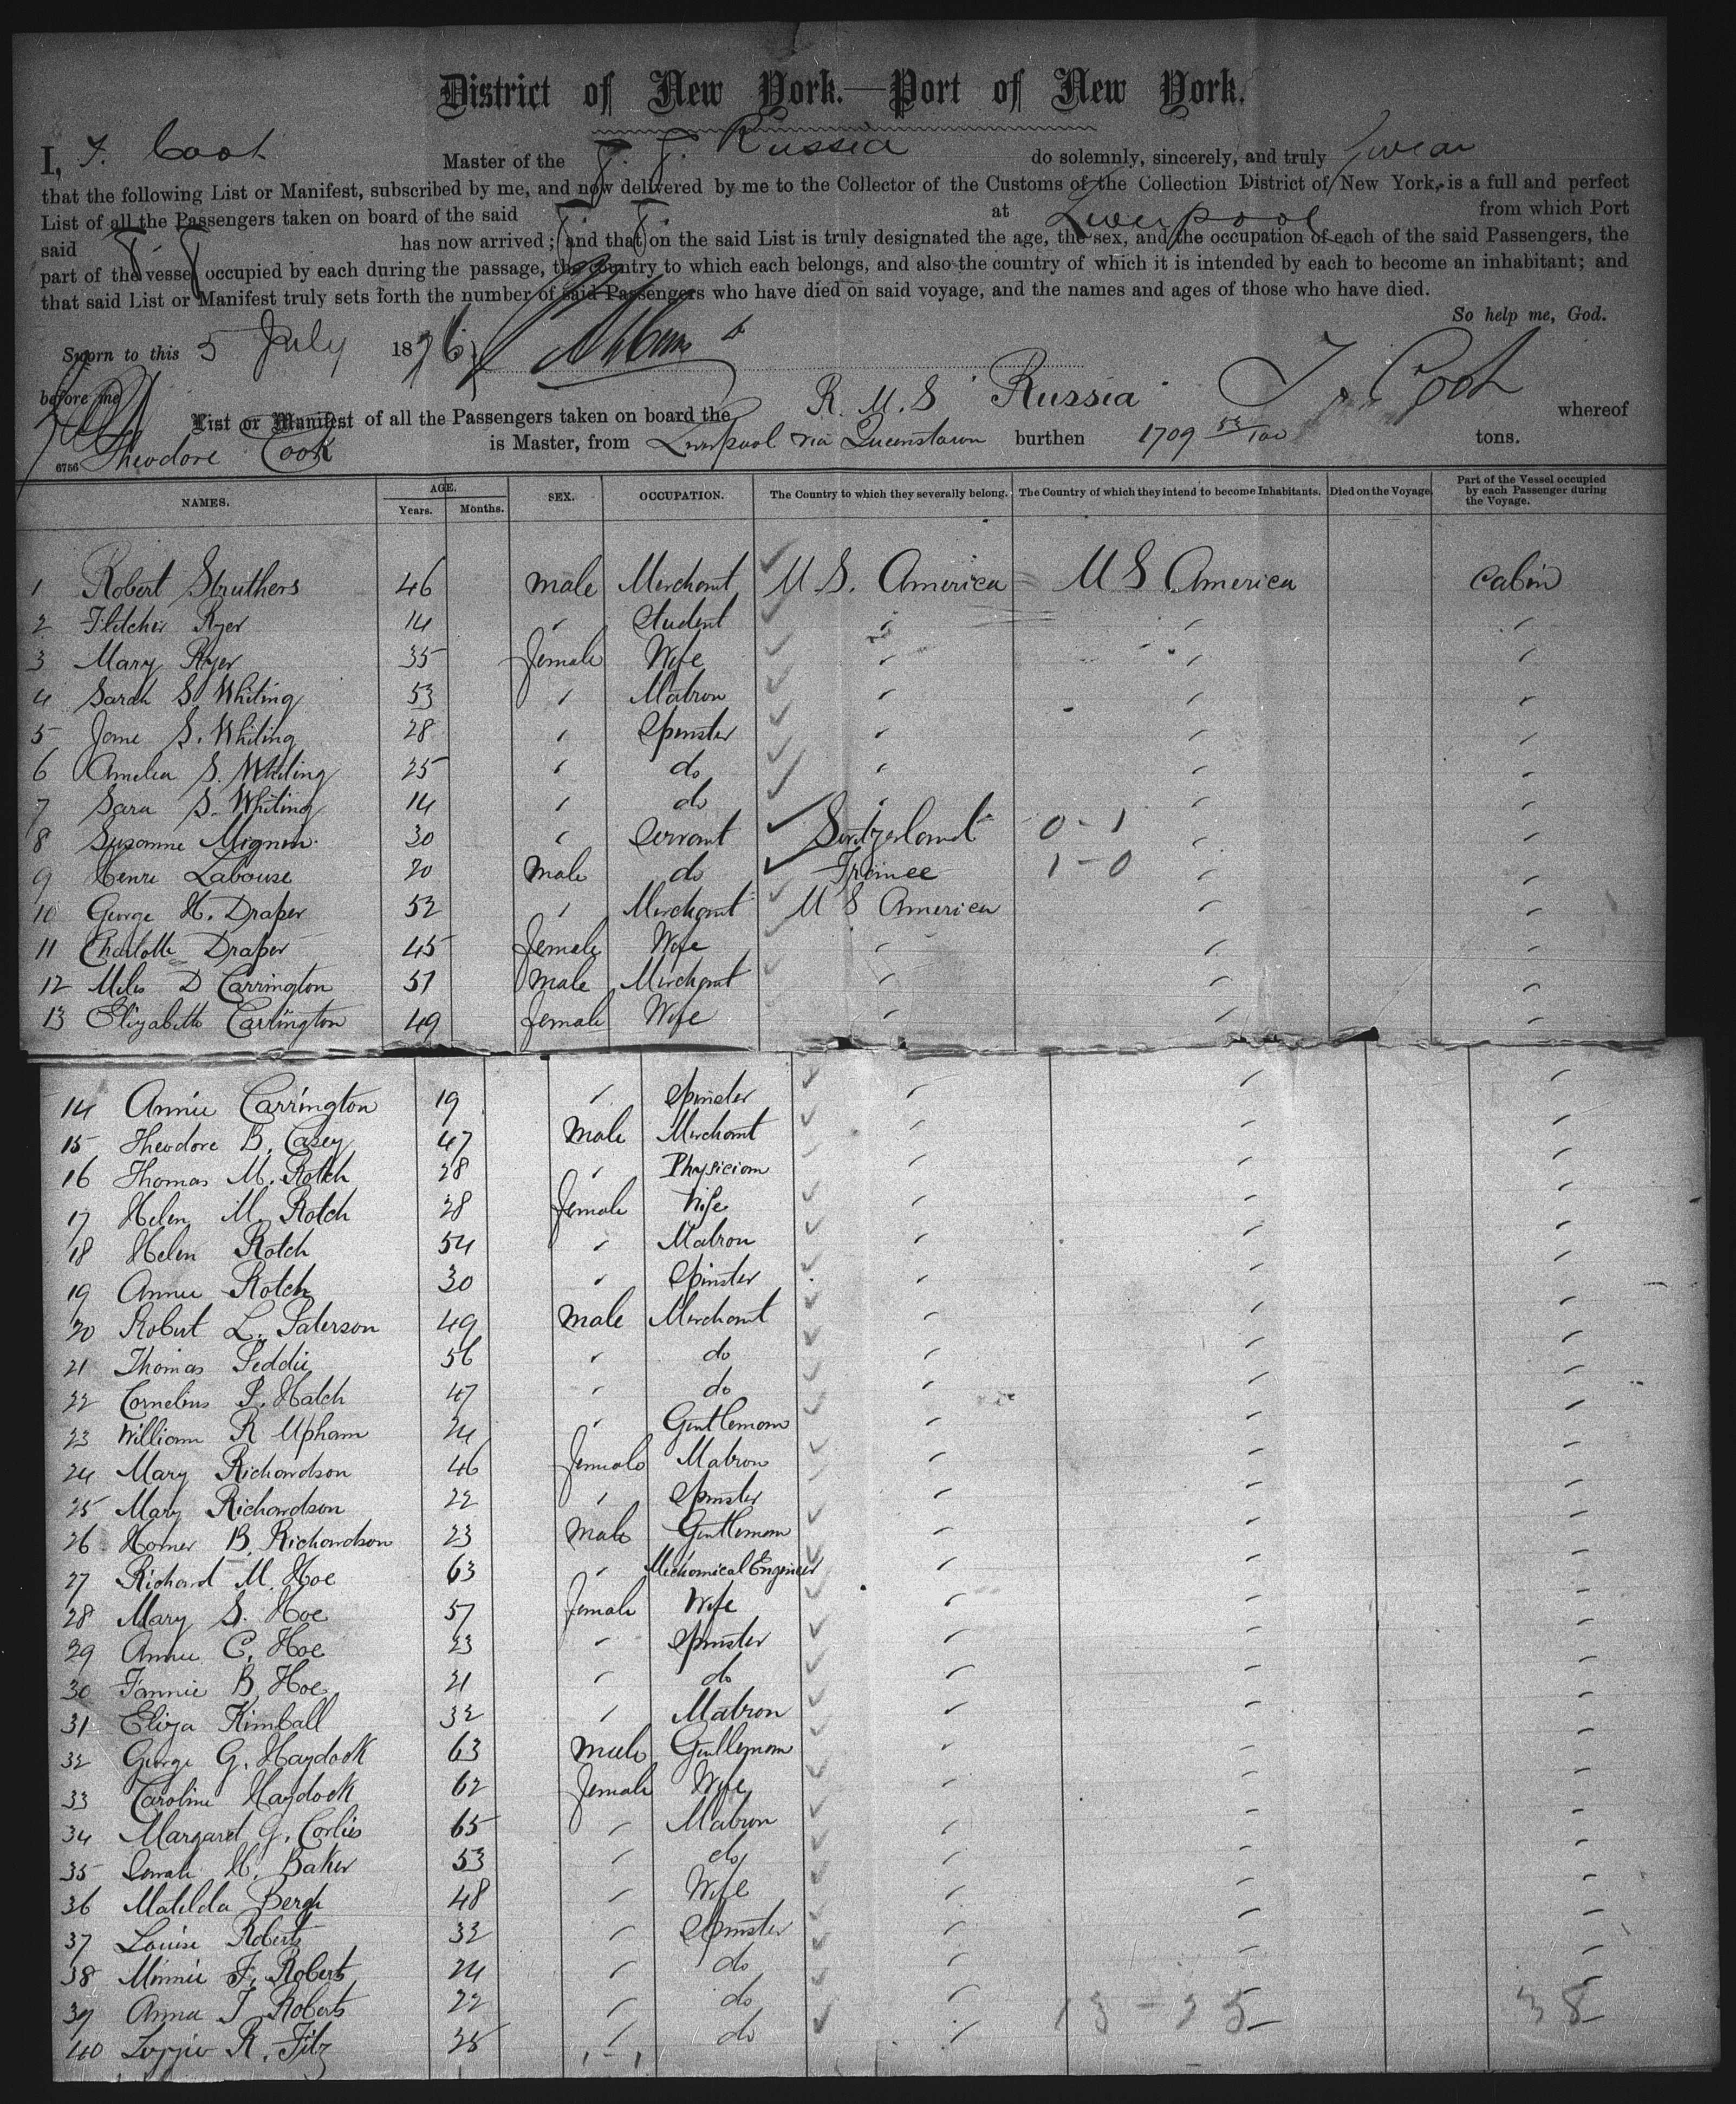 District of New York.—Port of New York.
I, T. Cook Master of the S. S. Russia do solemnly, sincerely, and truly swear
that the following List or Manifest, subscribed by me, and now delivered by me to the Collector of the Customs of the Collection District of New York, is a full and perfect
List of all the Passengers taken on board of the said S. S. at Liverpool from which Port
said S. S. has now arrived; and that on the said List is truly designated the age, the sex, and the occupation of each of the said Passengers, the
part of the vessel occupied by each during the passage, the country to which each belongs, and also the country of which it is intended by each to become an inhabitant; and
that said List or Manifest truly sets forth the number of said Passengers who have died on said voyage, and the names and ages of those who have died.
So help me, God.
Sworn to this 5 July 1876
before me T. Cook
List or Manifest of all the Passengers taken on board the R. M. S "Russia" whereof
6756 Theodore Cook is Master, from Liverpool via Queenstown burthen 1709 53/100 tons.
NAMES. AGE. Years. Months. SEX. OCCUPATION. The Country to which they severally belong. The Country of which they intend to become Inhabitants. Died on the Voyage. Part of the Vessel occupied by each Passenger during the Voyage.
1 Robert Struthers 46 male Merchant U S. America U S America Cabin
2 Fletcher Ryer 14 " Student " " "
3 Mary Ryer 35 female Wife " " "
4 Sarah S. Whiting 53 " Matron " " "
5 Jane S. Whiting 28 " Spinster " " "
6 Amelia S. Whiting 25 " do " " "
7 Sara S. Whiting 14 " do " " "
8 Suzanne Mignon 30 " Servant Switzerland 0-1 " "
9 Henri Labouse 20 male do France 1-0 " "
10 George H. Draper 52 " Merchant U S America " "
11 Charlotte Draper 45 female Wife " " "
12 Miles D Carrington 51 male Merchant " " "
13 Elizabeth Carrington 49 female Wife " " "
14 Annie Carrington 19 " Spinster " " "
15 Theodore B. Casey 47 male Merchant " " "
16 Thomas M. Rotch 28 " Physician " " "
17 Helen M. Rotch 28 female Wife " " "
18 Helen Rotch 54 " Matron " " "
19 Annie Rotch 30 " Spinster " " "
20 Robert L. Paterson 49 male Merchant " " "
21 Thomas Peddie 56 " do " " "
22 Cornelius P. Hatch 47 " do " " "
23 William R Upham 24 " Gentleman " " "
24 Mary Richardson 46 female Matron " " "
25 Mary Richardson 22 " Spinster " " "
26 Homer B. Richardson 23 male Gentleman " " "
27 Richard M. Hoe 63 " Mechanical Engineer " " "
28 Mary S. Hoe 57 female Wife " " "
29 Annie C. Hoe 23 " Spinster " " "
30 Fannie B. Hoe 21 " do " " "
31 Eliza Kimball 32 " Matron " " "
32 George G. Haydock 63 male Gentleman " " "
33 Caroline Haydock 62 female Wife " " "
34 Margaret G. Corlies 65 " Matron " " "
35 Sarah H. Baker 53 " do " " "
36 Matilda Bergh 48 " Wife " " "
37 Louise Roberts 32 " Spinster " " "
38 Minnie F. Roberts 24 " do " " "
39 Anna T Roberts 22 " do " 13-25 38
40 Lizzie R. Fitz 25 " do " " "
1-1